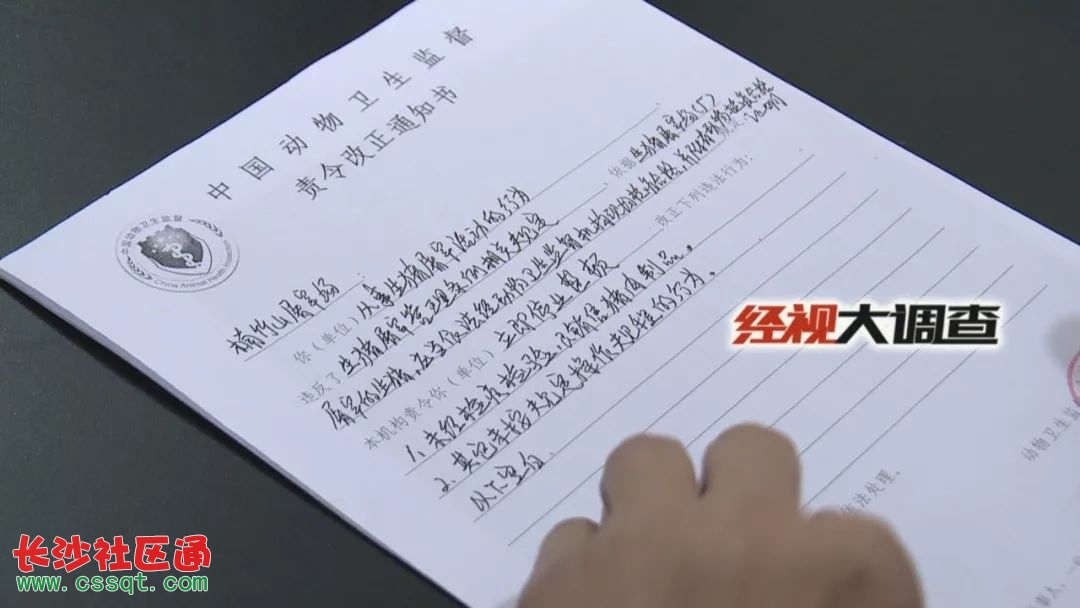 中国动物卫生监督
责令改正通知书
中国动物卫生监督
China Animal Health Inspection
楠竹山屠宰场
你（单位）从事生猪屠宰活动的行为
依据生猪屠宰场(厂)
违反了生猪屠宰管理条例相关规定
屠宰的生猪，应当依法经动物卫生监督机构
证明
本机构责令你（单位）立即停业整顿
改正下列违法行为：
1、未经检疫检验，及销售生猪肉制品。
2、其它未按规定操作规程的行为。
以下空白。
依法处理。
动物卫生监
事人，一
经视大调查
长沙社区通
www.cssqt.com